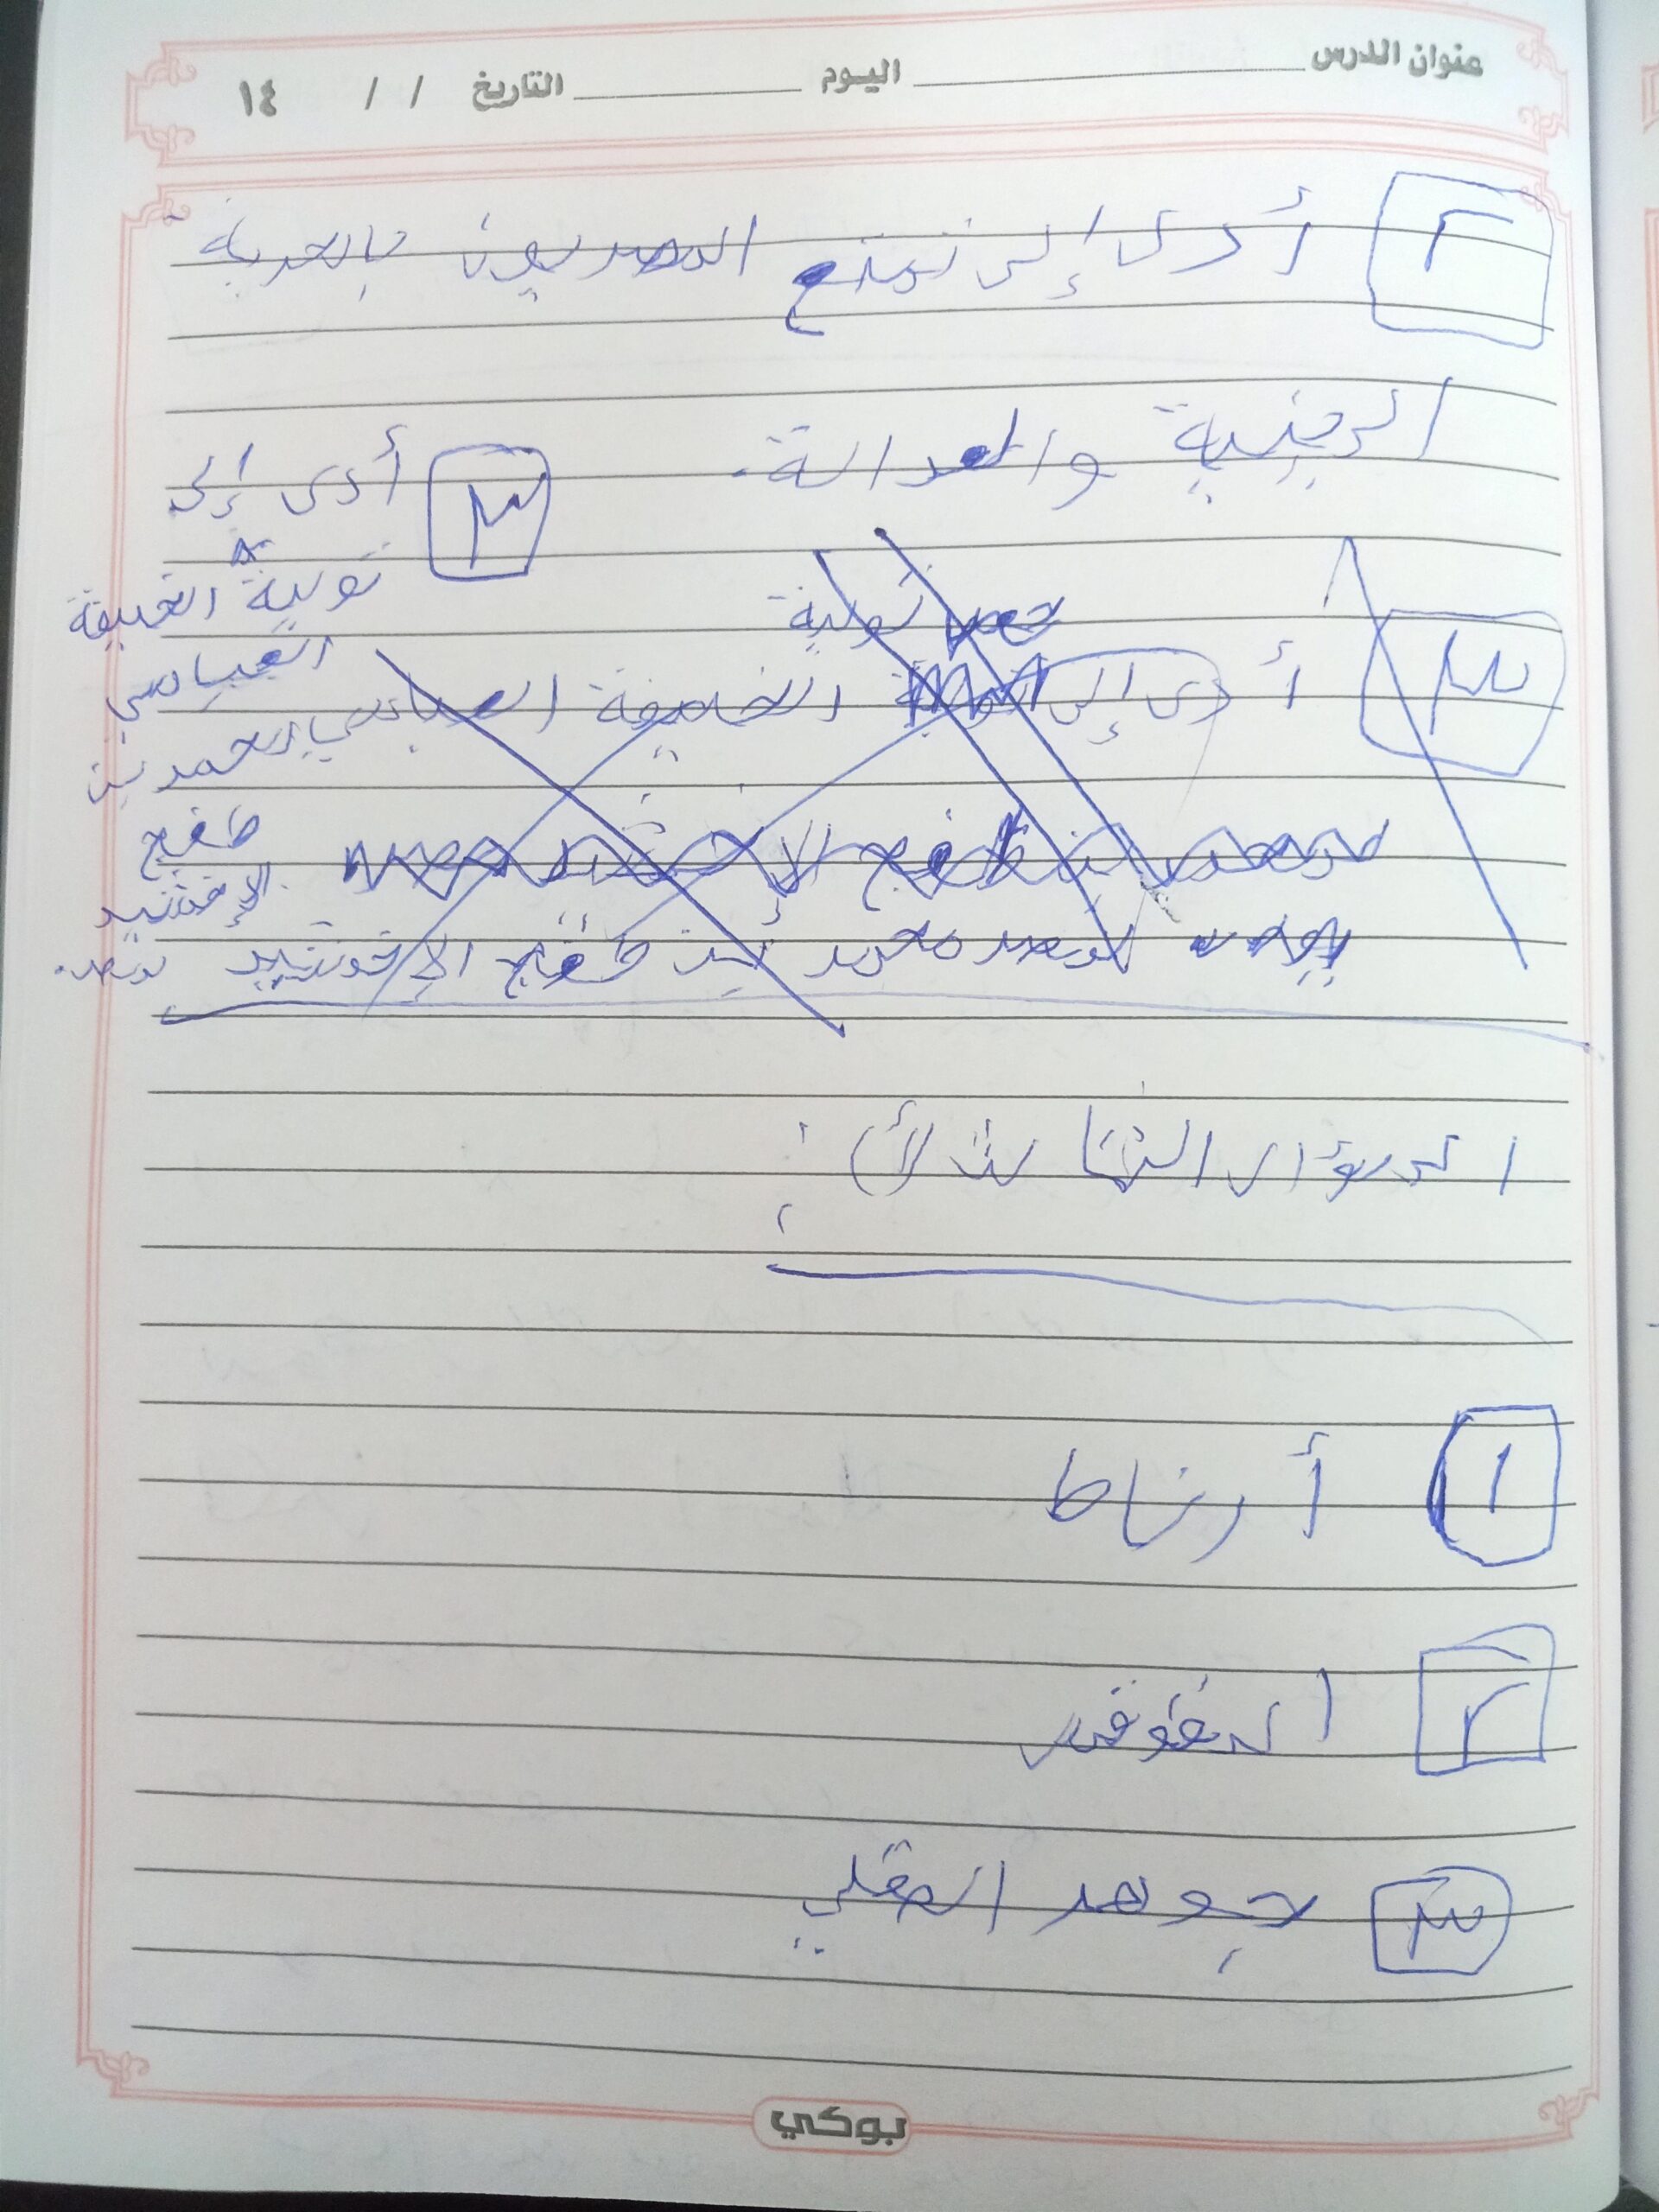 عنوان الدرس اليوم التاريخ / / ١٤
٢ أدى إلى تمتع المصريون بالحرية
الدينية والعدالة.
٣ أدى إلى
تولية الخليفة
العباسي لمحمد بن
طغج
الإخشيد
لمصر.
تولية
٣ أدى إلى الخليفة العباسي
محمد بن طغج الإخشيد
لمصر محمد بن طغج الإخشيد
السؤال الثالث (أ) :
١ أرناط
٢ المقوقس
٣ جوهر الصقلي
بوكي